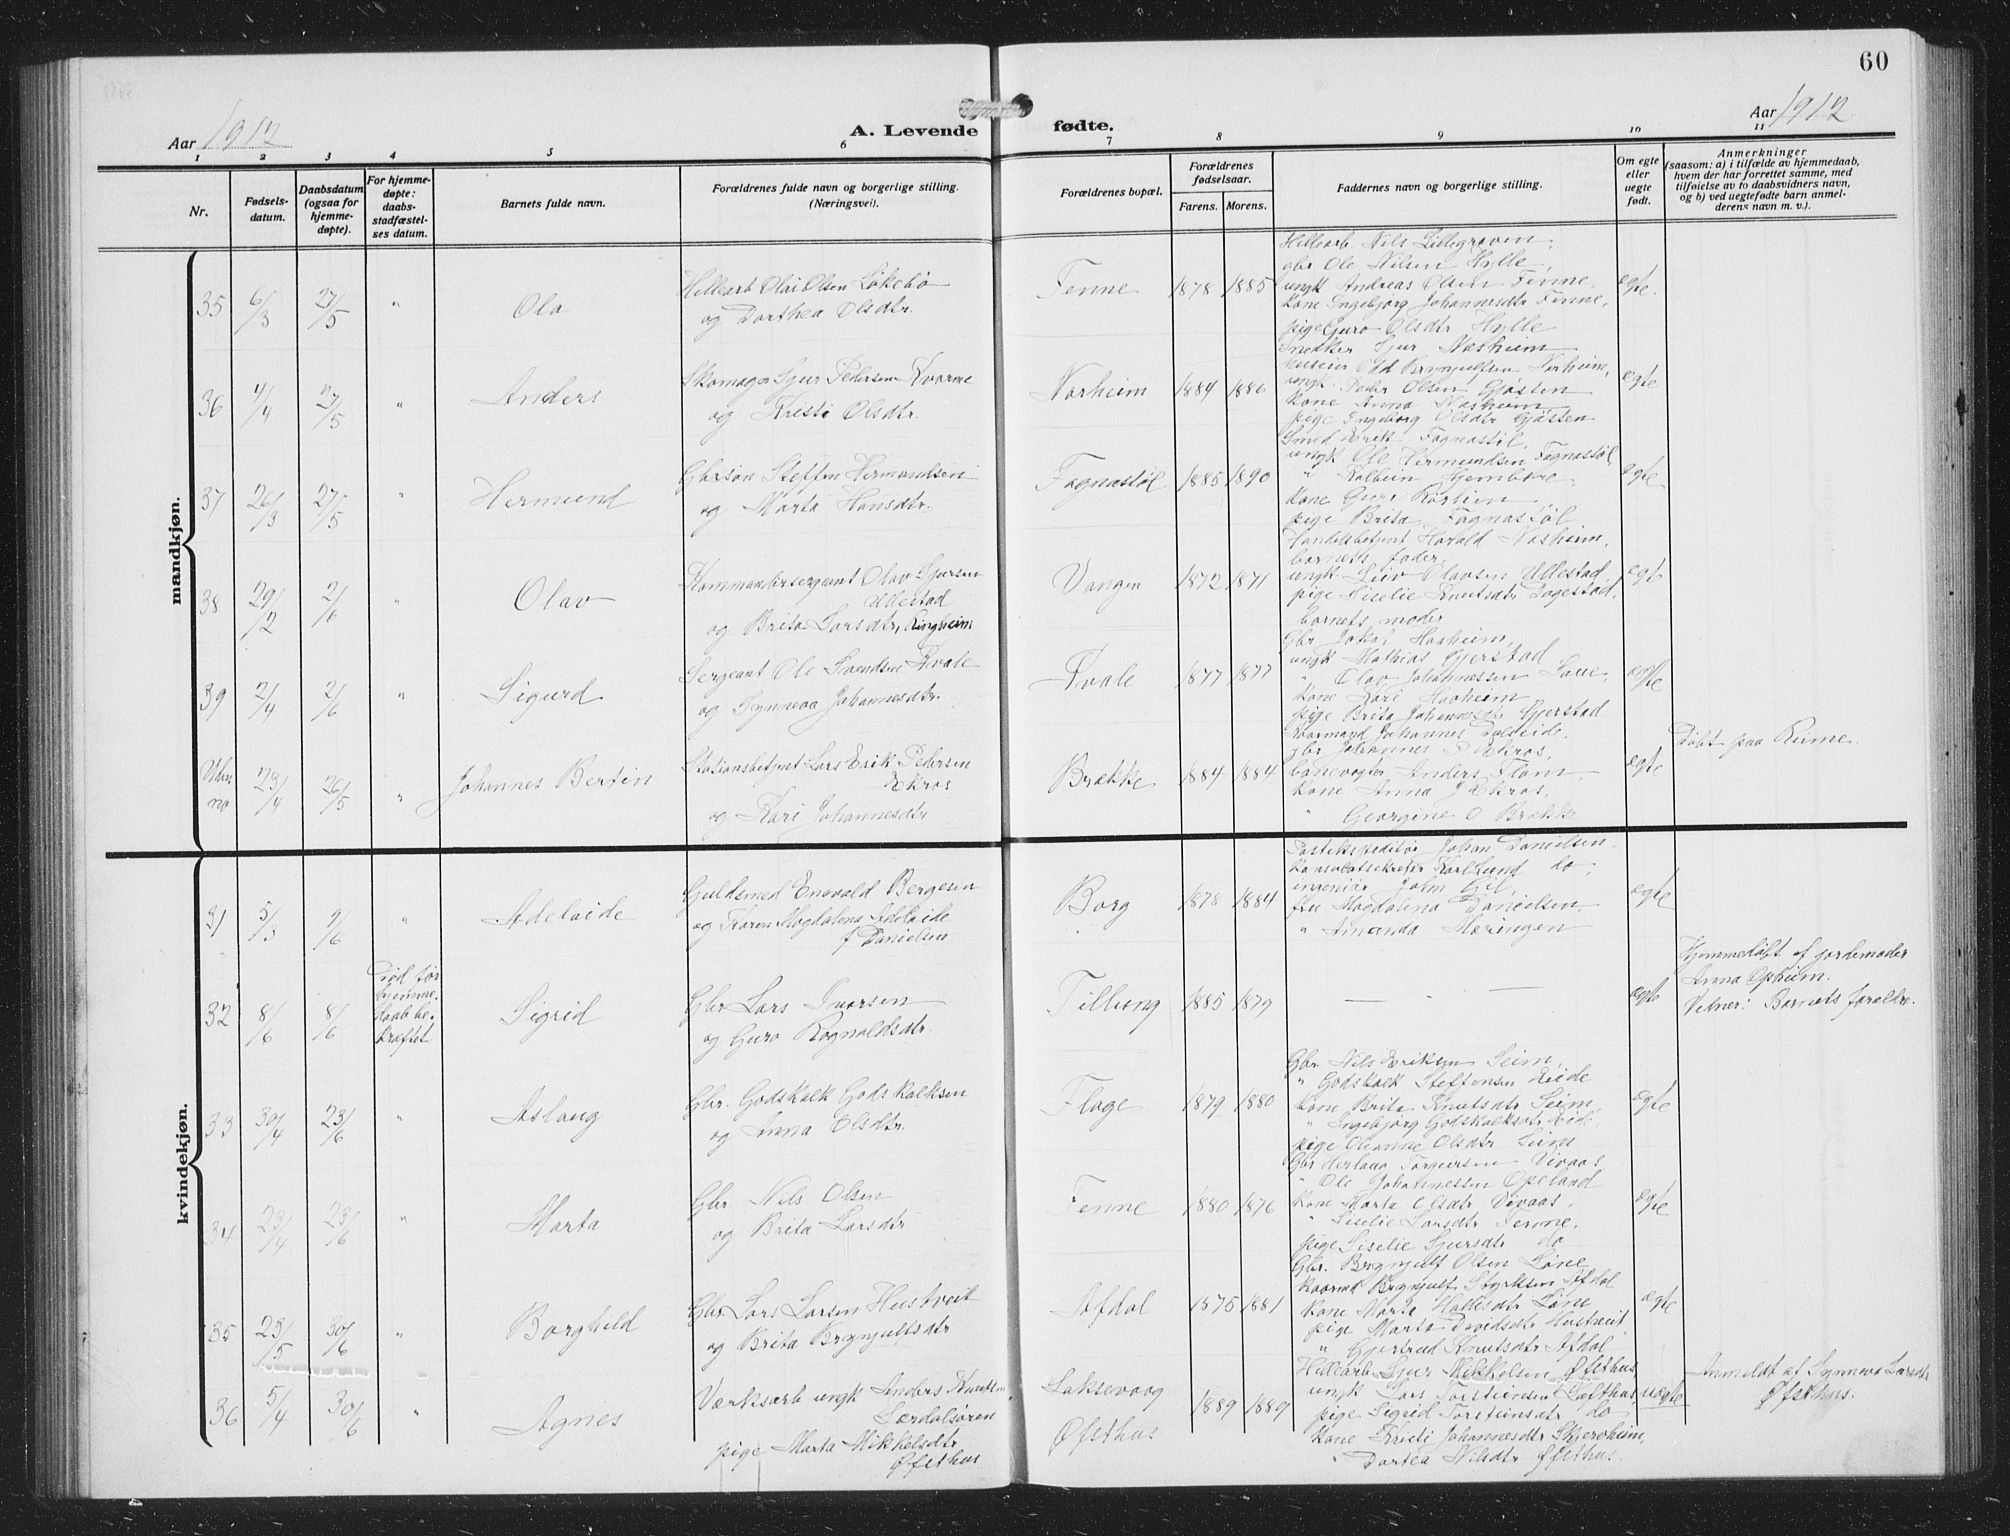 60
Aar 1912
A. Levende fødte.
Aar 1912
1 2 3 4 5 6 7 8 9 10 11
Nr.
Fødsels-
datum.
Daabsdatum
(ogsaa for
hjemme-
døpte).
For hjemme-
døpte:
daabs-
stadfæstel-
ses datum.
Barnets fulde navn.
Forældrenes fulde navn og borgerlige stilling.
(Næringsvei).
Forældrenes bopæl.
Forældrenes
fødselsaar.
Farens. Morens.
Faddernes navn og borgerlige stilling.
Om egte
eller
uegte
født.
Anmerkninger
(saasom: a) i tilfælde av hjemmedaab,
hvem der har forrettet samme, med
tilføielse av to daabsvidners navn,
og b) ved uegtefødte barn anmel-
derens navn m. v.).
mandkjøn.
35 6/3 27/5 " Ola
Olai Olsen Løkebø
og Dorthea Olsdtr.
Tenne 1878 1885
Nils Lillegraven,
gbr Ole Nilsen Hylle,
ungk Andreas Olsen Tenne,
kone Ingebjørg Johannesdtr Tenne,
pige Guro Olsdtr Hylle
egte.
36 4/4 27/5 " Anders
Skomager Sjur Pedersen Kvarme
og Kristi Olsdtr.
Norheim 1884 1886
Snedker Sjur Næsheim
Odd Brynjulfsen Norheim,
ungk Peder Olsen Gjøsten
kone Anna Næsheim
pige Ingeborg Olsdtr Gjøsten
egte
37 26/3 27/5 " Hermund
Gbrsøn Steffen Hermundsen
og Marta Hansdtr.
Fagnastøl 1885 1890
Smed Erik Fagnastøl,
ungk Ole Hermundsen Fagnastøl,
" Kolbein
kone Guri
pige Brita Fagnastøl
egte
38 29/2 2/6 " Olav
Kommandersergeant Olav Sjursen
Ullestad
og Brita Larsdtr, Ringheim
Vangen 1872 1871
Handelsbetjent Harald Næsheim,
barnets fader,
ungk Leiv Olavsen Ullestad,
pige Siselie Knutsdtr
barnets moder
egte
39 2/4 2/6 " Sigurd
Sergeant Ole Svendsen Kvale
og Synneva Johannesdtr.
Kvale 1877 1877
Gbr Haaheim,
ungk Mathias Gjerstad
" Olav Johannessen
kone Kari Haaheim
pige Brita Johannesdtr Gjerstad
egte
Uten
no 23/4 26/5 " Johannes Bertin
Stationsbetjent Lars Erik Pedersen
Ekros
og Kari Johannesdtr
Brække 1884 1884
Johannes
gbr Johannes P Ekros,
banevogter Anders Flam
kone Anna J Ekros,
" Georgine O Brække
egte
Døbt paa Rume.
kvindekjøn.
31 5/3 9/6 " Adelaide
Guldsmed Enevald Bergesen
og Karen Magdalena Adelaide
f Danielsen
Borg 1878 1884
Postekspeditør Johan Danielsen,
konsulatsekretær Karl Lund do,
ingeniør John Gil,
fru Magdalena Danielsen,
" Amanda Mæringen
egte
32 8/6 8/6
Død før
hjemme-
daab be-
kræftet.
Sigrid
Gbr Lars Ivarsen
og Guro Rognaldsdtr.
Tillung 1885 1879
— " —
egte
Hjemmedøbt af jordemoder
Anna Opheim.
Vidner: Barnets forældre.
33 30/4 23/6 " Aslaug
Gbr. Godskalk Godskalksen
og Anna Olsdtr.
Flage 1879 1880
Gbr Nils Eriksen Seim,
" Godskalk Steffensen Eide
kone Brita Knutsdtr Seim,
" Ingebjørg Godskalksdtr Eide
pige Olianne Olsdtr Seim
egte
34 23/4 23/6 " Marta
Gbr. Nils Olsen
og Brita Larsdtr
Tenne 1880 1876
Gbr Herlaug Torgeirsen Vivaas
" Ole Johannessen Opeland
kone Marta Olsdtr Vivaas,
" Siselie Larsdtr Tenne,
pige Siselie Sjursdtr do
egte
35 23/5 30/6 " Borghild
Gbr Lars Larsen Hustveit
og Brita Brynjulfsdtr
Afdal 1875 1881
Gbr. Brynjulf Olsen Løne
Brynjulf Styrksen Afdal
kone Marta Løne
pige Marta Davidsdtr Hustveit
" Gjertrud Knutsdtr Afdal
egte
36 5/4 30/6 " Agnes
Værksarb ungk Anders Knutsen
Lærdalsøren
pige Marta Mikkelsdtr
Øfsthus
Laksevaag
Øfsthus
1889 1889
Sjur Mikkelsen Øfsthus
ungk Lars Torsteinsen Øfsthus,
pige Sigrid Torsteinsdtr do
kone Kristi Johannesdtr Skjerveheim,
" Dortea Nilsdtr Øfsthus.
uegte
Anmeldt af Synneva Larsdtr
Øfsthus.